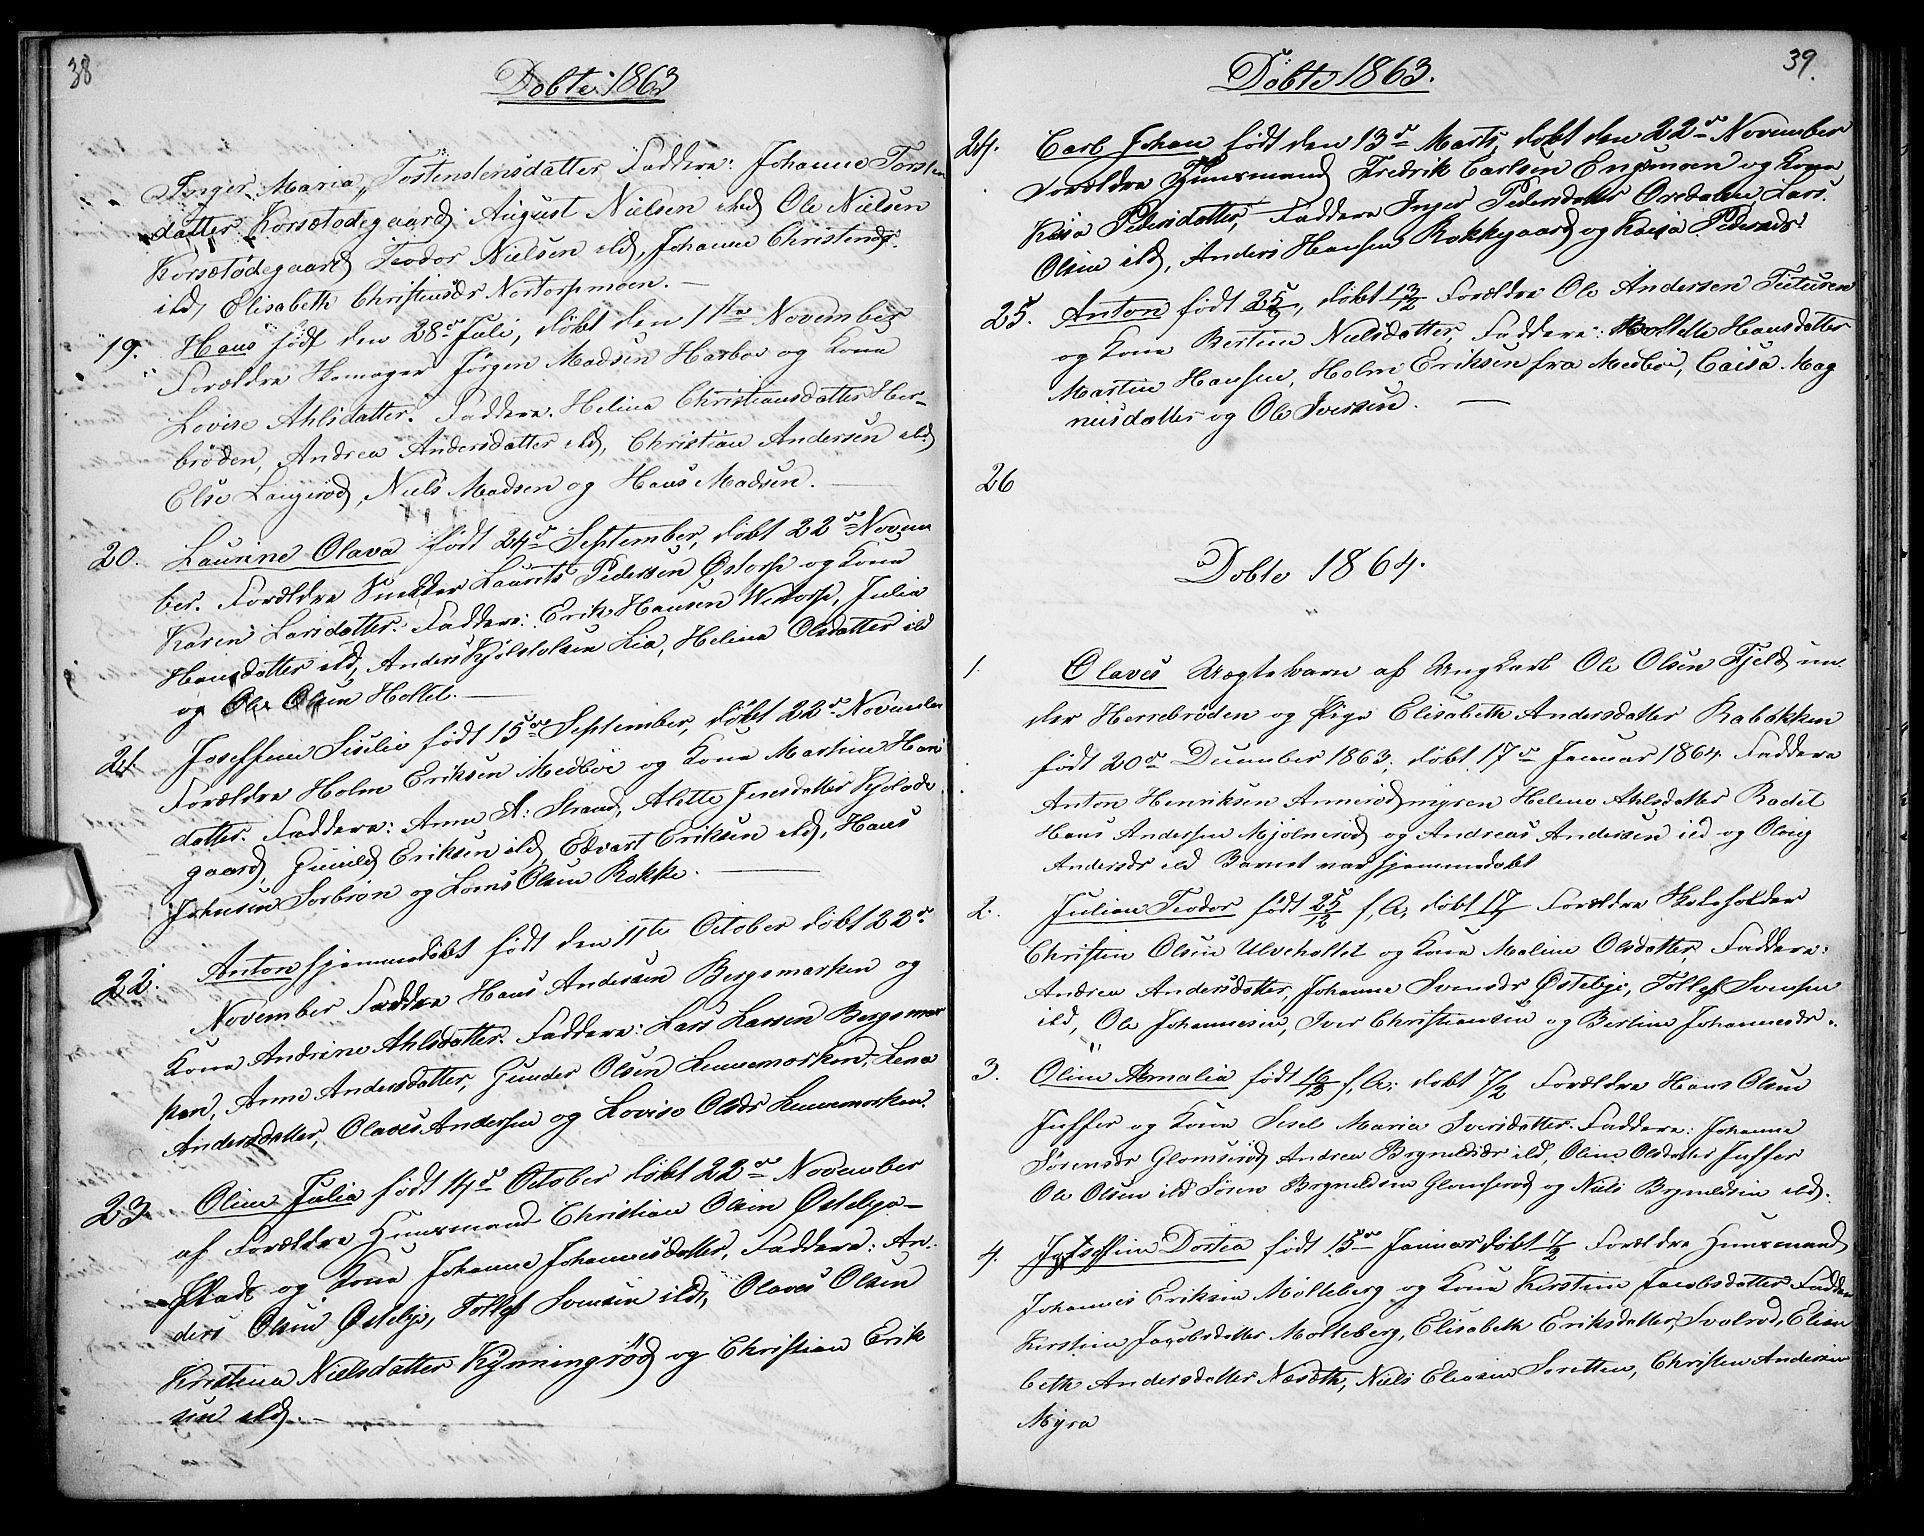 38
Døbte 1863
Inger Maria, Tostenstensdatter Faddere: Johanne Torsten
datter Korsætødegaard August Nielsen ibd Ole Nielsen
Korsetødegaard Teodor Nielsen ibd, Johanne Christensdr.
ibd, Elisabeth Christiansdr Nortorpmoen. —
19. Hans født den 28de Juli, døbt den 1ste November
Forældre Skomager Jørgen Madsen Harboe og Kona
Lovise Ahlsdatter. Faddere: Helena Christiansdatter Her-
brøden, Andrea Andersdatter ibd, Christian Andersen ibd
Else Langerød, Niels Madsen og Hans Madsen. —
20. Laurine Olava født 24de September, døbt 22de Novem
ber. Forældre Snedker Laurits Pedersen Østorp og Kona
Karen Larsdatter. Faddere: Erik Hansen Westorp, Julia
Hansdatter ibd, Anders Kjølstolsen Lia, Helene Olsdatter ibd
og Ole Olsen Holtet. —
21. Joseffine Sisilie født 15de September, døbt 22de November
Forældre Holm Eriksen Medbøe og Kona Martine Hans
datter. Faddere: Anne A: Strand, Alette Jensdatter Kjøløde
gaard, Gunild Eriksen ibd, Edvart Eriksen ibd, Hans
Johnsen Sorbrøn og Lorns Olsen Rokke. —
22. Anton hjemmedøbt født den 11te October døbt 22de
November Fadder Hans Andersen Bergsmarken og
Kona Andrine Ahlsdatter. Faddere: Lars Larsen Bergsmar
ken, Anne Andersdatter, Gunder Olsen Lennemarken, Lena
Andersdatter, Olaves Andersen og Lovise Olsdr Lennemarken.
23 Oline Julia født 14de October døbt 22de November
af Forældre Huusmand Christian Olsen Østebye-
Stade og Kona Johanne Johannesdatter, Faddere: An-
ders Olsen Østebye, Tollef Svensen ibd, Olaves Olsen
Kristina Nielsdatter Kynningrød og Christian Erik
sen ibd. —
39.
Døbte 1863.
24. Carl Johan født den 13de Marts, døbt den 22de November
Forældre Huusmand Fredrik Carlsen Engsmoen og Kona
Kaisa Pedersdatter, Faddere Inger Pedersdatter Oredalen, Lars
Olsen ibd, Anders Hansen Rokkegaard og Kaisa Pedersdr
25. Anton født 25/5, døbt 13/2 Forældre Ole Andersen Tietusen
og Kona Bertine Nielsdatter, Faddere: Hansdatter
Martin Hansen, Holm Eriksen fra Medbøe, Caisa Mag
nusdatter og Ole Iversen. —
26
Døbte 1864.
1. Olaves Uægtebarn af Ungkarl Ole Olsen Fjeld un
der Herrebrøden og Pige Elisabeth Andersdatter Rabækken
født 20de December 1863, døbt 17de Januar 1864 Faddere
Anton Henriksen Annerødmyren Helene Ahlsdatter Radet
Hans Andersen Mjølnerød og Andreas Andersen ibd og Olevig
Andersdr ibd Barnet var hjemmedøbt
2. Julian Teodor født 25/12 f, A, døbt 17/1 Forældre Skoleholder
Christen Olsen Ulveholtet og Kona Maline Olsdatter, Faddere:
Andrea Andersdatter, Johanne Svensdr Østebye, Tollef Svensen
ibd, Ole Johannesen, Iver Christiansen og Bertine Johannesdr.
3. Oline Amalia født 16/12 f, A, døbt 7/2 Forældre Hans Olsen
Juffer og Kona Sesel Maria Iversdatter. Faddere: Johanne
Sørensdr Glomserød Andrea Bryneldsdr ibd, Oline Olsdatter Juffer
Ole Olsen ibd Søren Bryneldsen Glomserød og Niels Bryneldsen ibd.
4. Joseffine Dortea født 15de Januar døbt 7/2 Forældre Huusmand
Johannes Eriksen Molteberg og Kona Kirstine Jacobsdatter Faddere
Kirstine Jacobsdatter Molteberg, Elisabeth Eriksdatter, Svalrød, Elisa
beth Andersdatter Næsset, Niels Eliasen Soretten, Christen Andersen
Myra